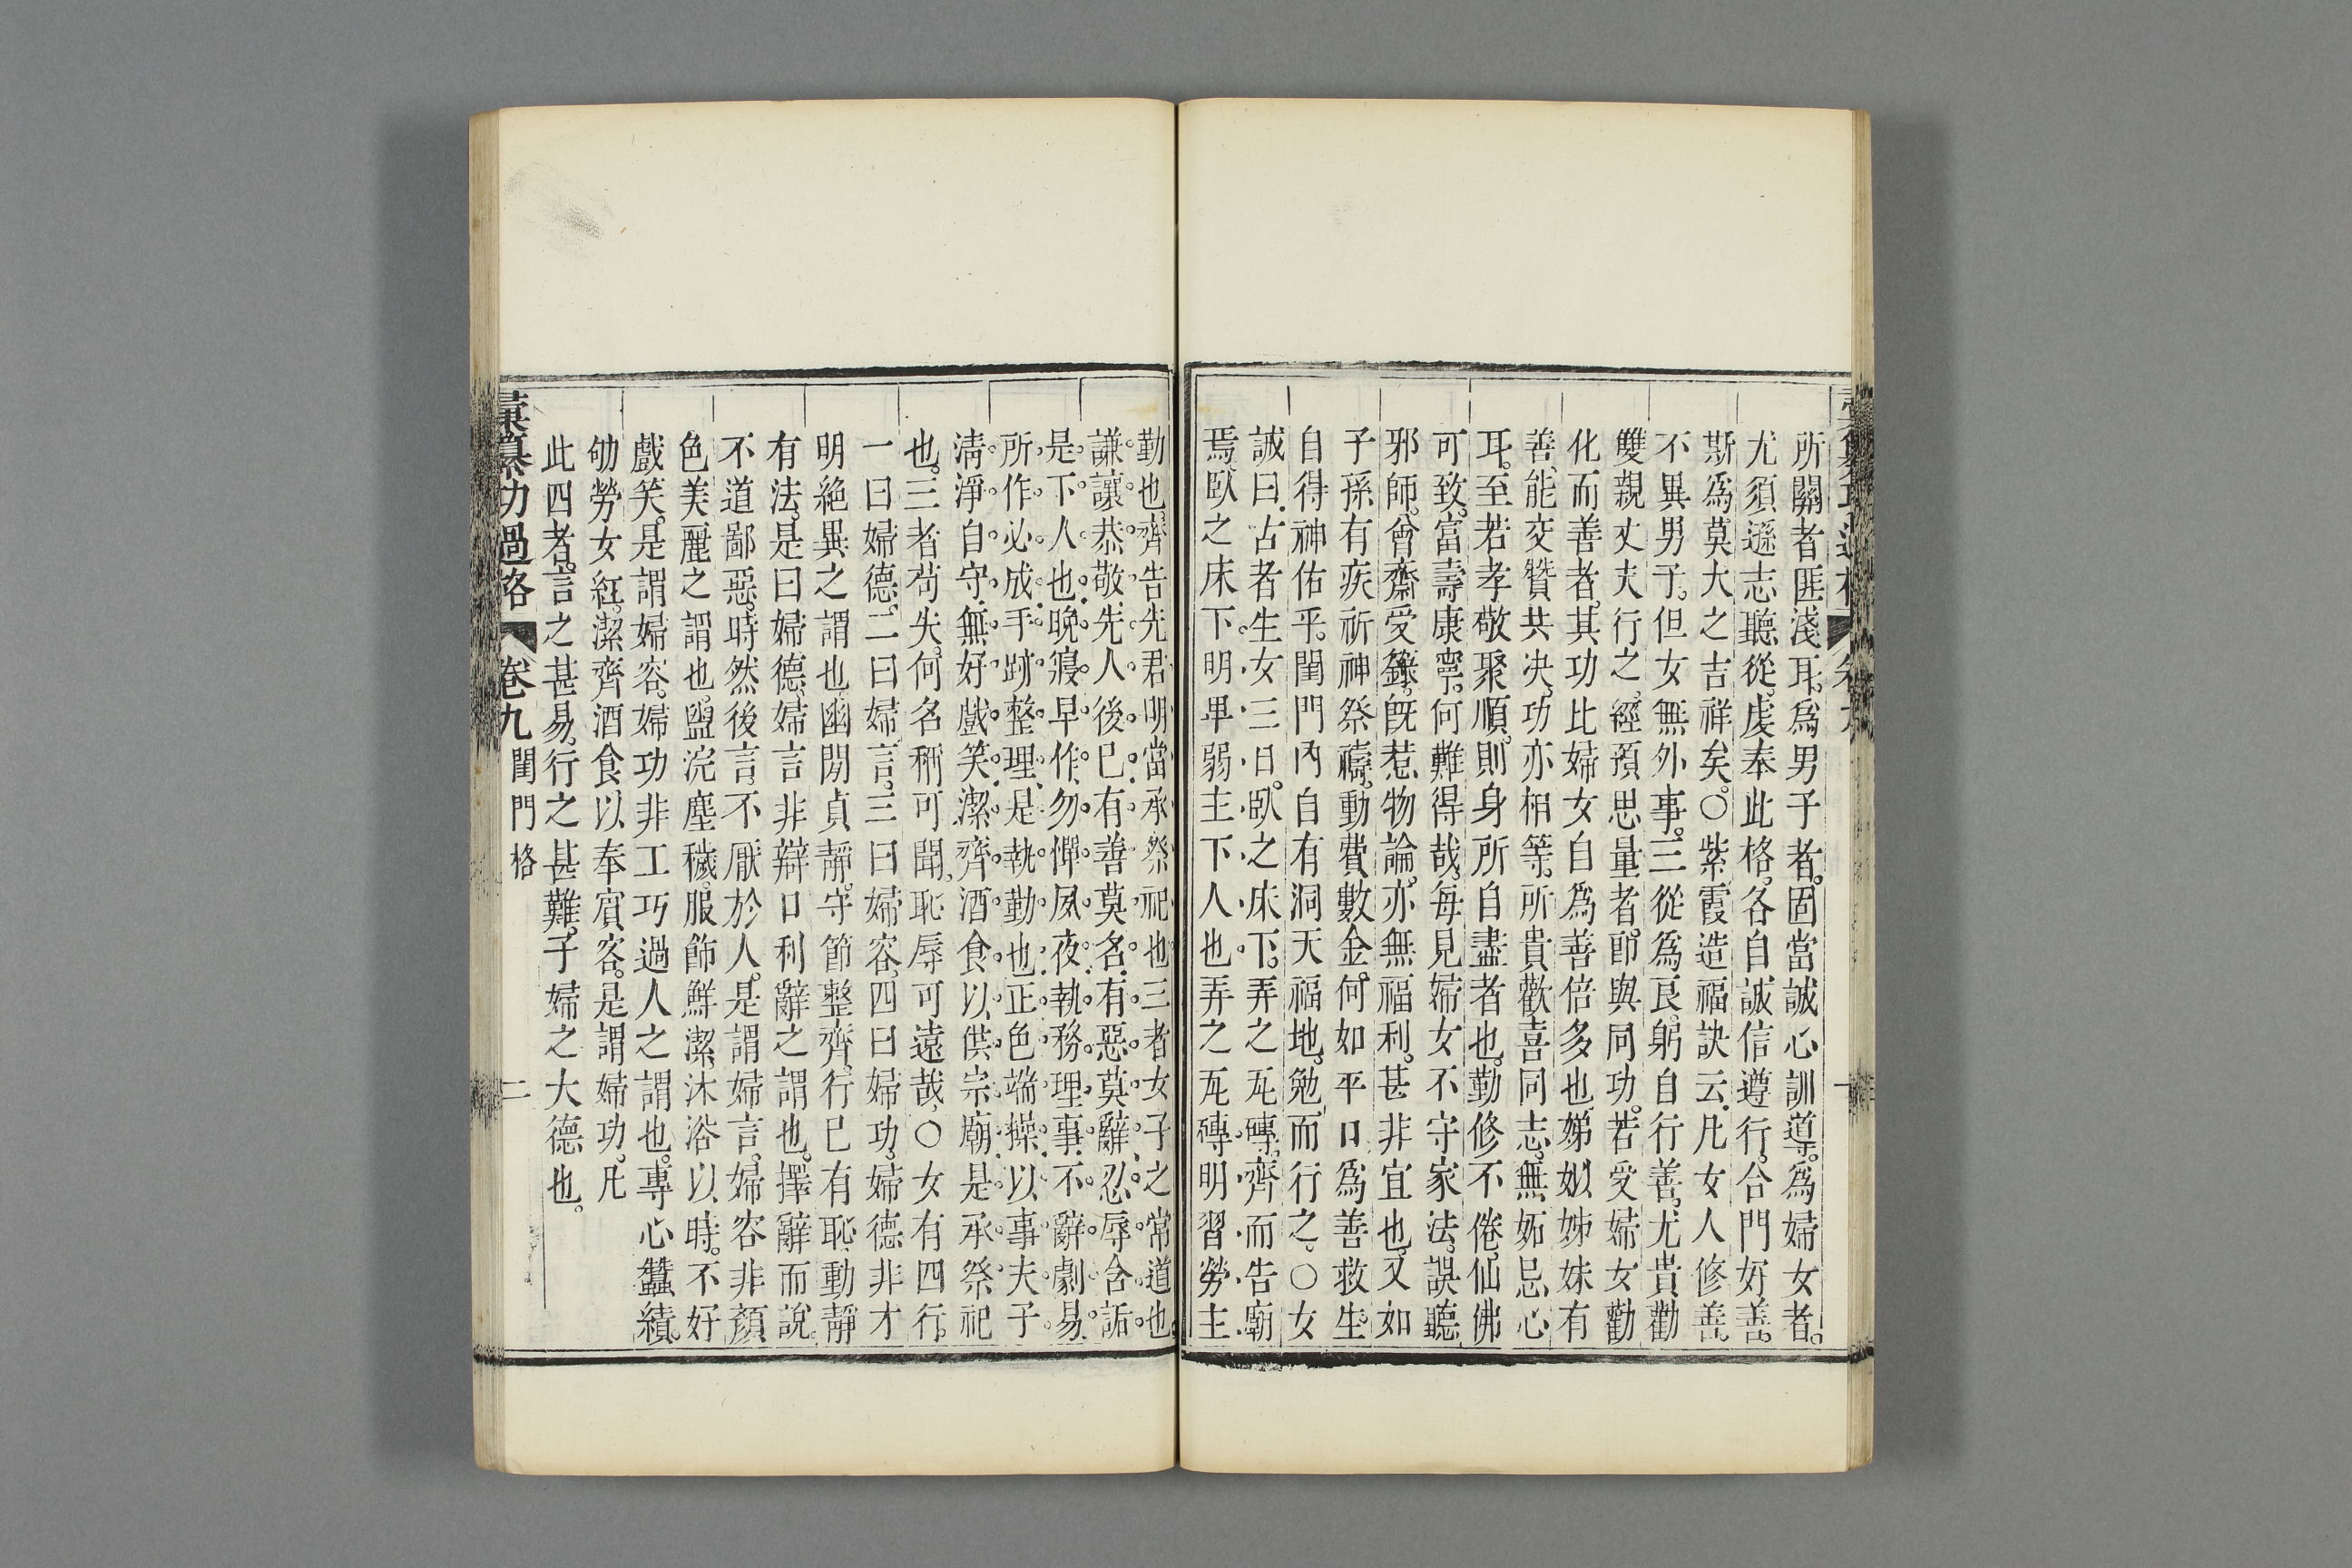 所關者匪淺耳。爲男子者。固當誠心訓道。爲婦女者。
尤須遜志聽從。虔奉此格。各自誠信遵行。合門好善。
斯爲莫大之吉祥矣。○紫霞造福訣云。凡女人修善。
不異男子。但女無外事。三從爲良。躬自行善。尤貴勸
雙親丈夫行之。經預思量者。卽與同功。若受婦女勸
化而善者。其功比婦女自爲善倍多也。娣姒姊妹有
善。能交贊共决。功亦相等。所貴歡喜同志。無妬忌心
耳。至若孝敬聚順。則身所自盡者也。勤修不倦。仙佛
可致。富壽康寧。何難得哉。每見婦女不守家法。誤聽
邪師。曾齋受籙。旣惹物論。亦無福利。甚非宜也。又如
子孫有疾祈神祭禱。動費數金。何如平日爲善救生。
自得神佑乎。閨門內自有洞天福地。勉而行之。○女
誡曰。古者生女三日。臥之床下。弄之瓦磚。齊而告廟
焉。臥之床下。明卑弱主下人也。弄之瓦磚。明習勞主
勤也。齊告先君。明當承祭祀也。三者女子之常道也。
謙讓恭敬。先人後已。有善莫名。有惡莫辭。忍辱含詬。
是下人也。晚寢早作。勿憚夙夜。執務理事。不辭劇易。
所作必成。手跡整理。是執勤也。正色端操。以事夫子。
淸淨自守。無好戲笑。潔齊酒食。以供宗廟。是承祭祀
也。三者苟失。何名稱可聞。恥辱可遠哉。○女有四行。
一曰婦德。二曰婦言。三曰婦容。四曰婦功。婦德非才
明絶異之謂也。幽閒貞靜。守節整齊。行已有恥。動靜
有法。是曰婦德。婦言非辯口利辭之謂也。擇辭而說。
不道鄙惡。時然後言。不厭於人。是謂婦言。婦容非顏
色美麗之謂也。盥浣塵穢。服飾鮮潔。沐浴以時。不好
戲笑。是謂婦容。婦功非工巧過人之謂也。專心蠶績。
劬勞女紅。潔齊酒食。以奉賓客。是謂婦功。凡
此四者。言之甚易。行之甚難。子婦之大德也。
彙纂功過格 卷九 閨門格 二